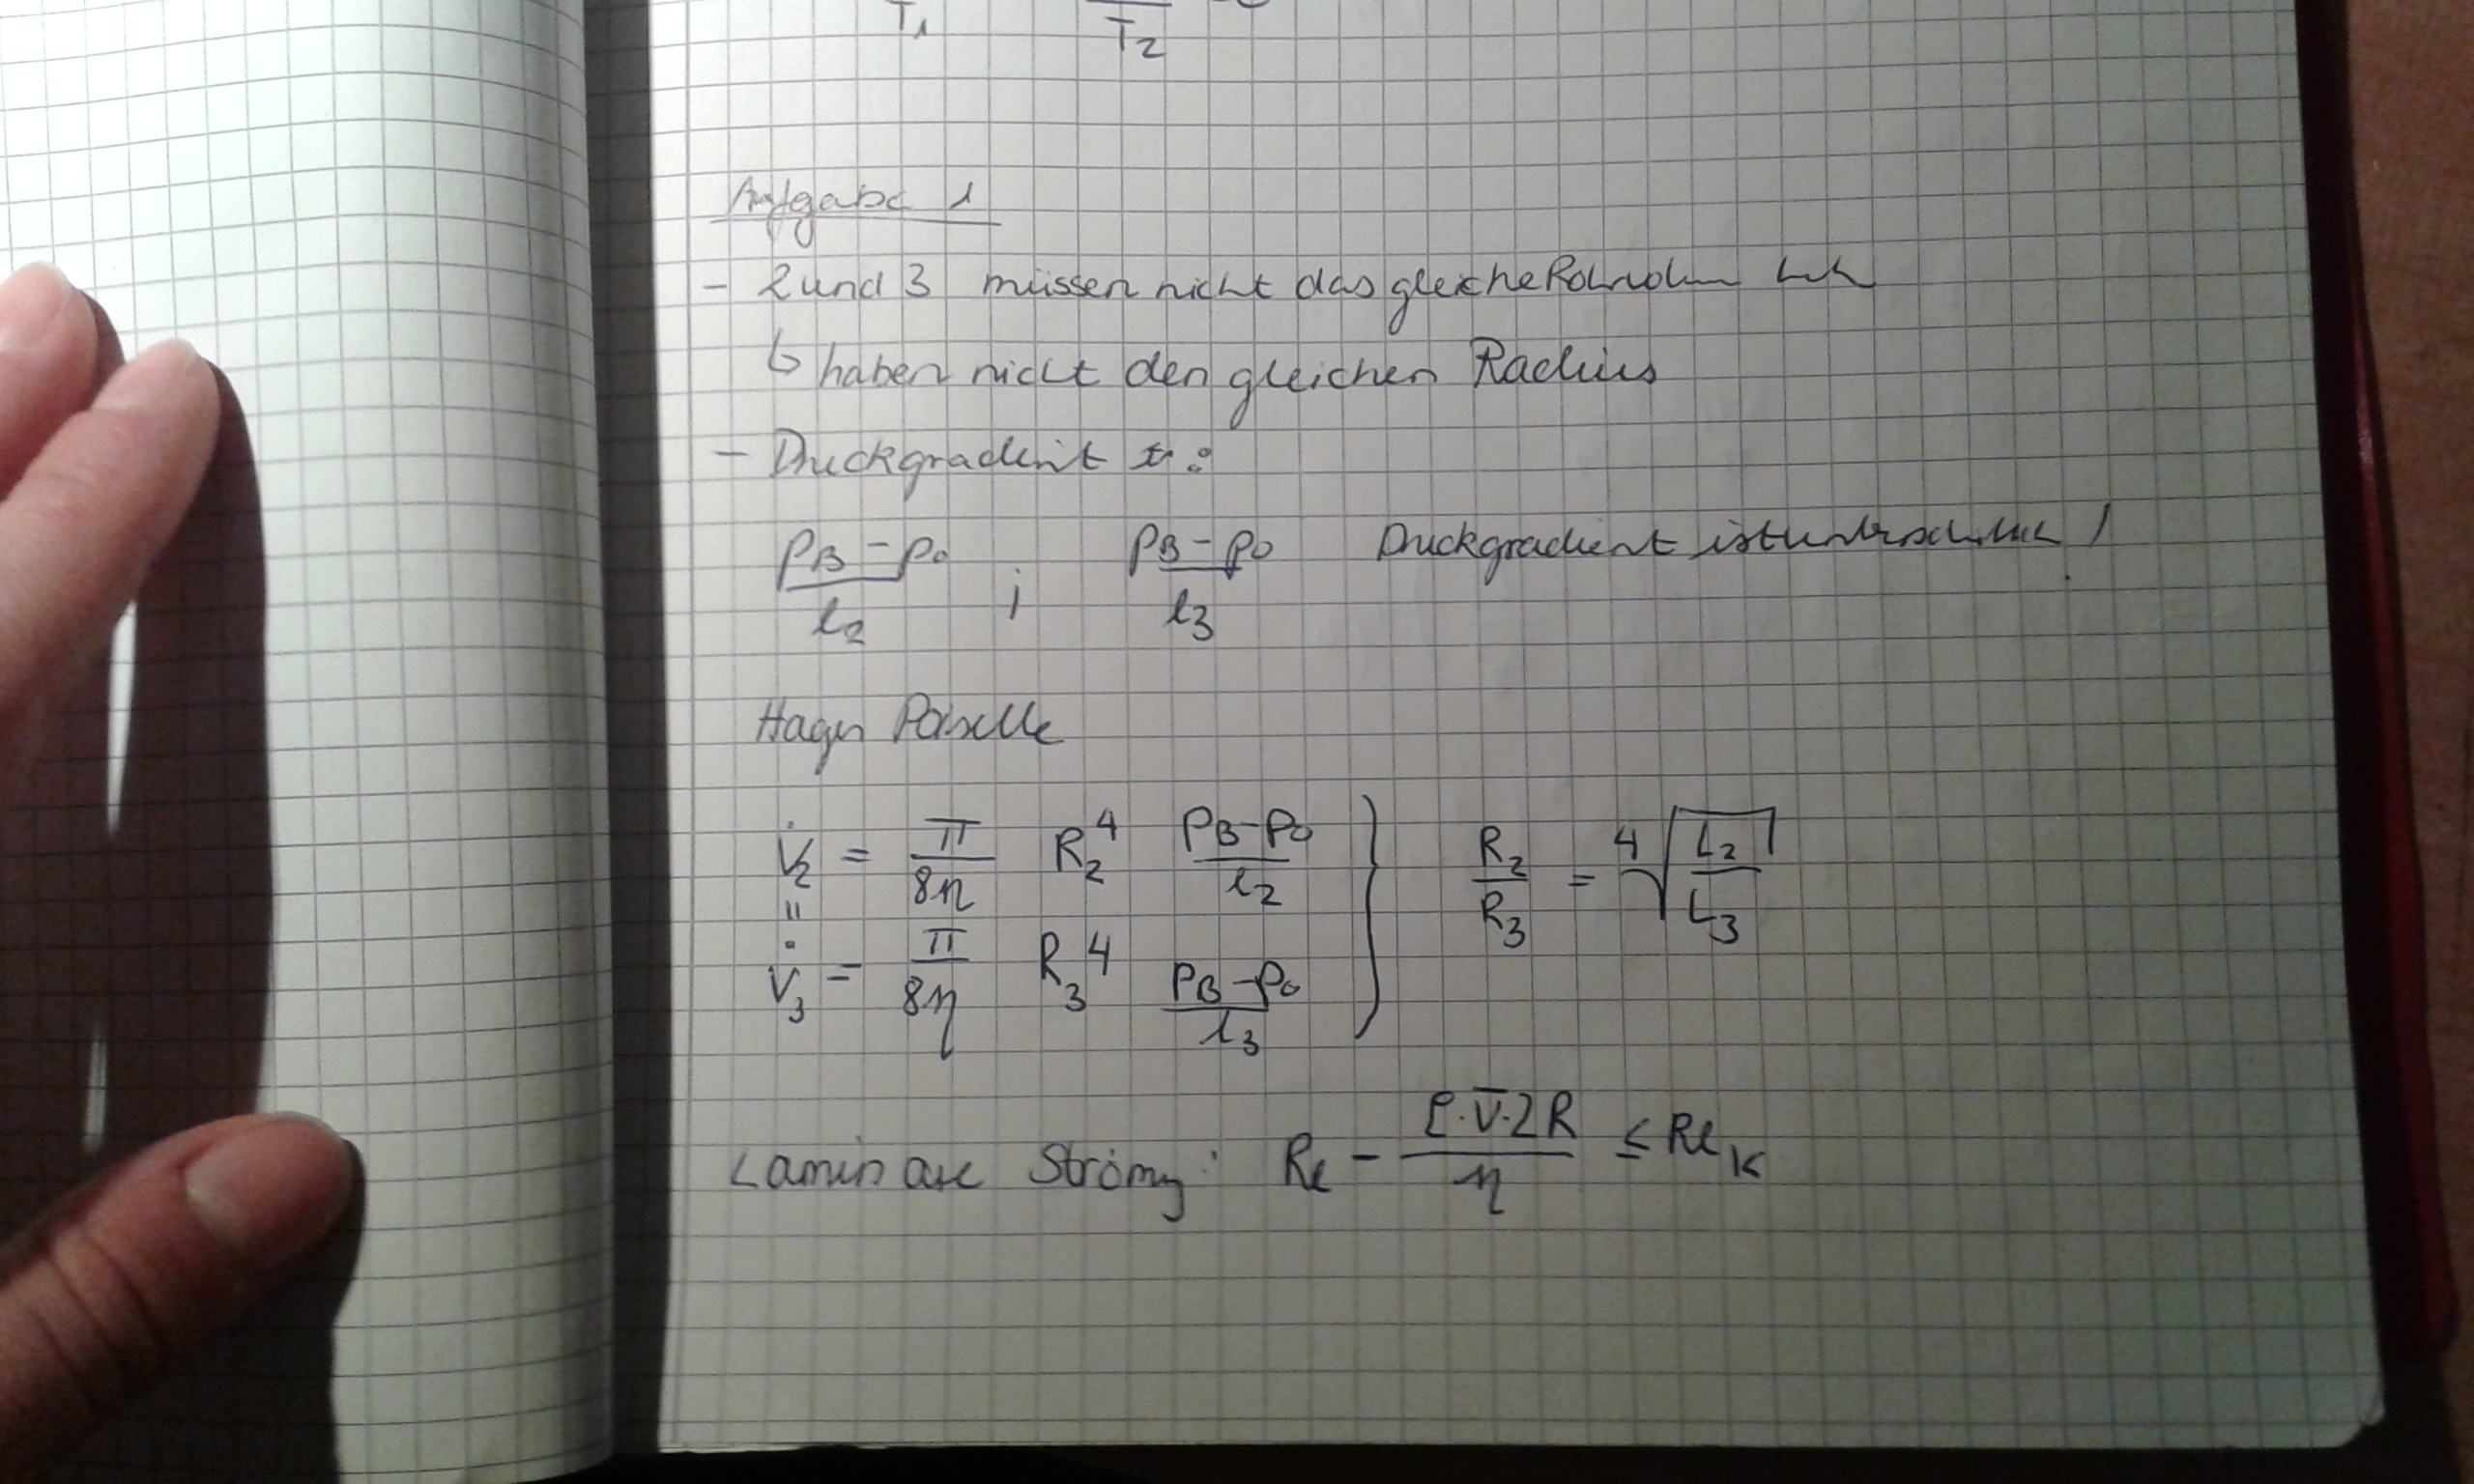 T₁ T₂
Aufgabe 1
- 2 und 3 müssen nicht das gleiche
↳ haben nicht den gleichen Radius
- Druckgradient :
(p_B - p_0)/l₂ ; (p_B - p_0)/l₃ Druckgradient ist unterschiedlich !
Hagen Poiselle
V̇₂ = π/(8η) R₂⁴ (p_B - p_0)/l₂
"
V̇₃ = π/(8η) R₃⁴ (p_B - p_0)/l₃ } R₂/R₃ = ⁴√(L₂/L₃)
Laminare Strömg: Re = (ρ·v̅·2R)/η ≤ Re_K